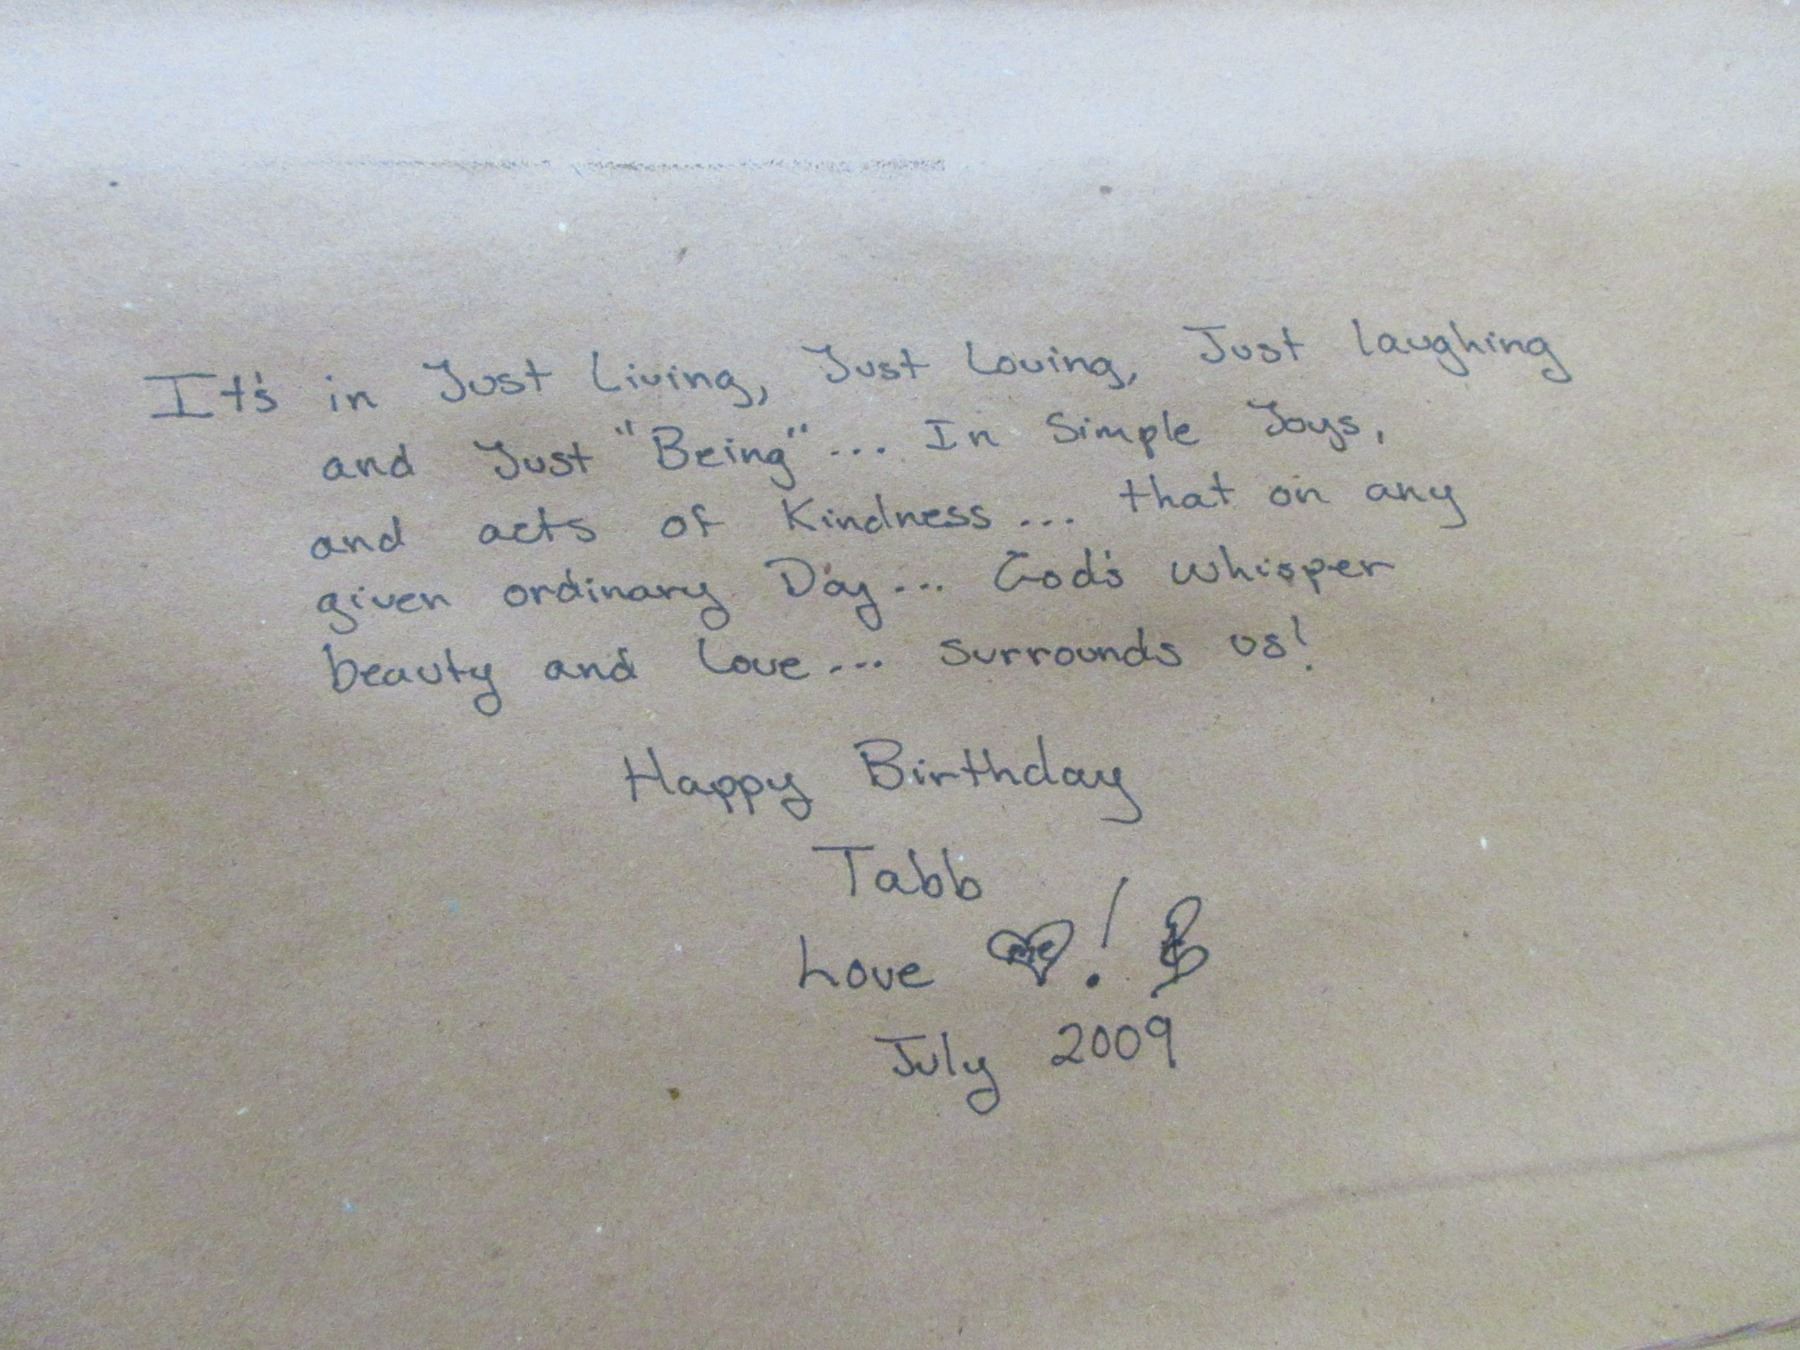 It's in Just Living, Just Loving, Just laughing
and Just "Being"... In Simple Joys,
and acts of Kindness... that on any
given ordinary Day... God's whisper
beauty and Love... surrounds us!
Happy Birthday
Tabb
Love me!
July 2009